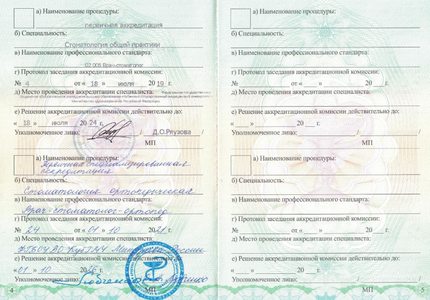 а) Наименование процедуры:
первичная аккредитация
б) Специальность:
Стоматология общей практики
в) Наименование профессионального стандарта:
02.005 Врач-стоматолог
г) Протокол заседания аккредитационной комиссии:
№ 4 от « 18 » июля 2019 г.
д) Место проведения аккредитации специалиста:
е) Решение аккредитационной комиссии действительно до:
« 18 » июля 2024 г.
Уполномоченное лицо: / Д.О.Ряузова /
МП
а) Наименование процедуры:
Первичная специализированная
аккредитация
б) Специальность:
Стоматология ортопедическая
в) Наименование профессионального стандарта:
Врач-стоматолог-ортопед
г) Протокол заседания аккредитационной комиссии:
№ 24 от « 01 » 10 2021 г.
д) место проведения аккредитации специалиста:
ФГБОУ ВО КубГМУ Минздрава России
е) Решение аккредитационной комиссии действительно до:
« 01 » 10 20 г.
Уполномоченное лицо
МП
4
а) Наименование процедуры:
б) Специальность:
в) Наименование профессионального стандарта:
г) Протокол заседания аккредитационной комиссии:
№ от « » 20 г.
д) Место проведения аккредитации специалиста:
е) Решение аккредитационной комиссии действительно до:
« » 20 г.
Уполномоченное лицо: / /
МП
а) Наименование процедуры:
б) Специальность:
в) Наименование профессионального стандарта:
г) Протокол заседания аккредитационной комиссии:
№ от « » 20 г.
д) место проведения аккредитации специалиста:
е) Решение аккредитационной комиссии действительно до:
« » 20 г.
Уполномоченное лицо: / /
МП
5